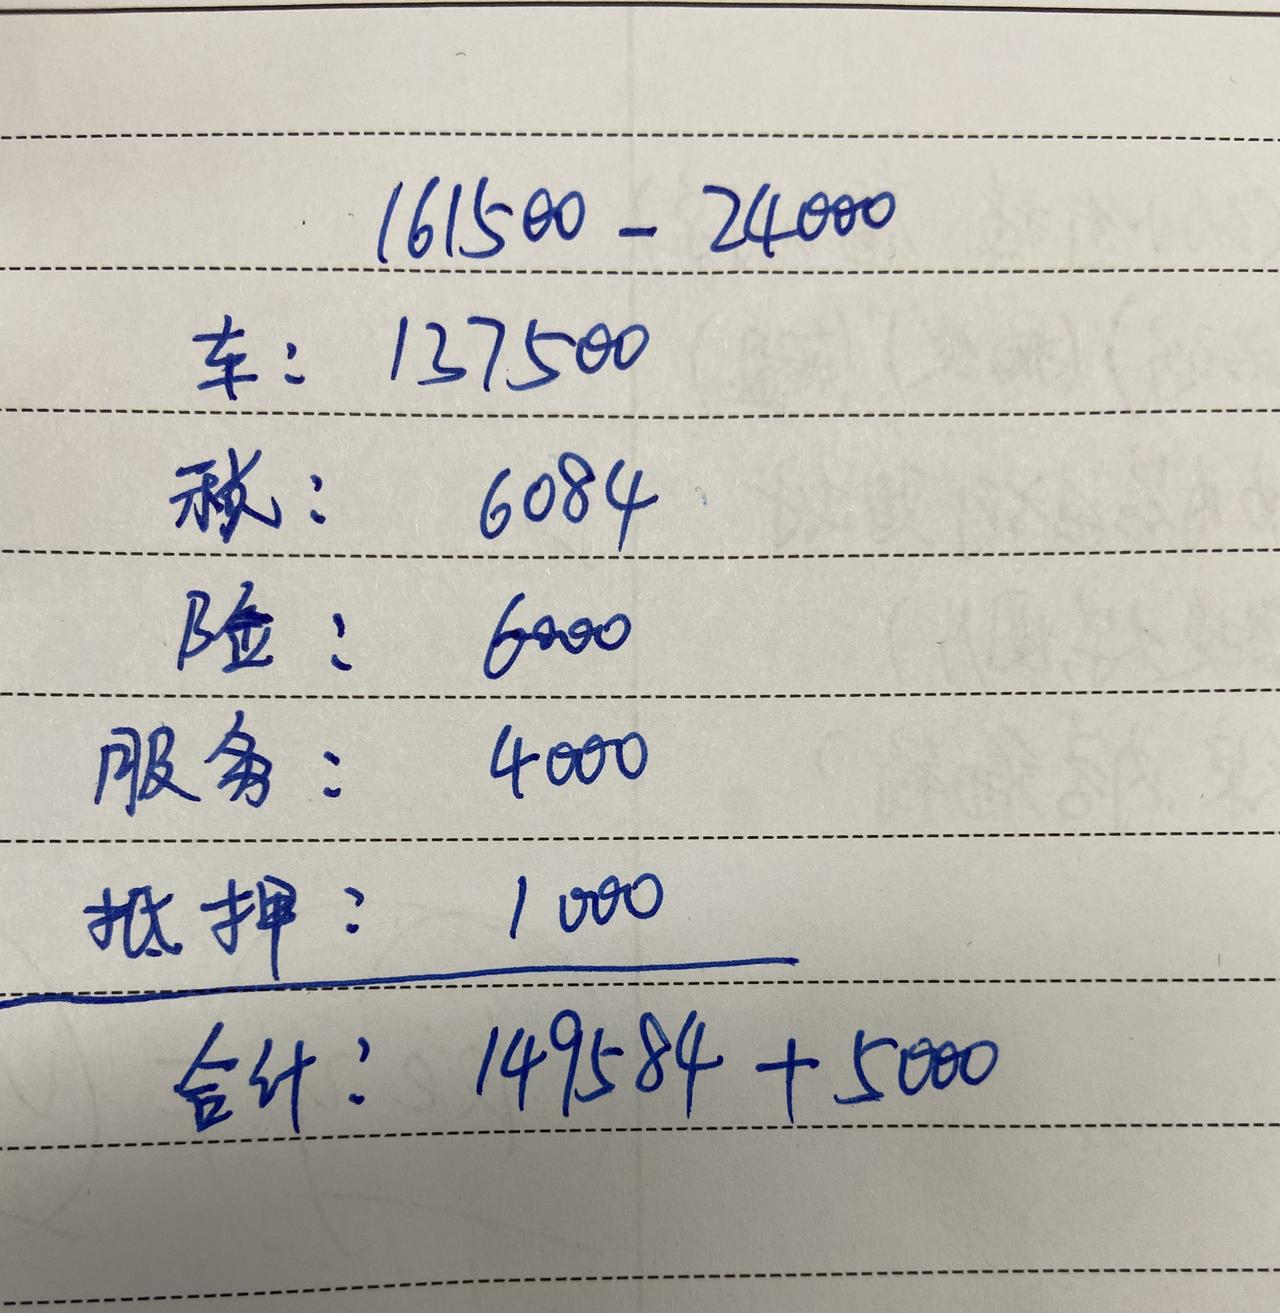 161500 - 24000
车: 137500
税: 6084
险: 6000
服务: 4000
抵押: 1000
合计: 149584 + 5000